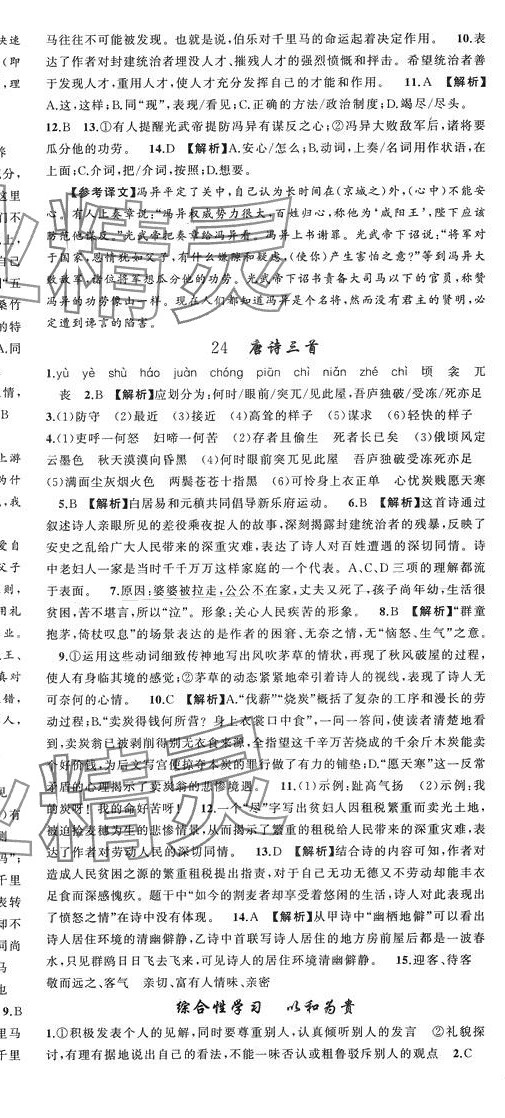 马往往不可能被发现。也就是说，伯乐对千里马的命运起着决定作用。 10.表
达了作者对封建统治者埋没人才、摧残人才的强烈愤慨和抨击。希望统治者善
于发现人才，重用人才，使人才充分发挥自己的才能和作用。 11.A 【解析】
A.这，这样；B.同“现”，表现/看见；C.正确的方法/政治制度；D.竭尽/尽头。
12.B 13.①有人提醒光武帝提防冯异有谋反之心；②冯异大败敌军后，诸将要
瓜分他的功劳。 14.D 【解析】A.安心/怎么；B.动词，上奏/名词用作状语，在
上面；C.介词，把/介词，按照；D.想要。
【参考译文】冯异平定了关中，自己认为长时间在（京城之）外，（心中）不能安
心。有人上奏章说：“冯异权威势力很大，百姓归心，称他为‘咸阳王’，陛下应该
防范他谋反。”光武帝把奏章给冯异看。冯异上书谢罪。光武帝下诏说：“将军对
于国家，恩情犹如父子，有什么嫌隙和疑虑，（使你）产生害怕之意？”等到冯异大
败敌军，诸位将军想瓜分他的功劳。光武帝下诏书责备大司马以下的官员，称赞
冯异的功劳像山一样。现在人们都知道冯异的名字，然而没有君主的贤明，必
定遭到谗言的陷害。
24 唐诗三首
1.yù yè shù háo juàn chóng piān chì niǎn zhé chì 顷 衾 兀
丧 2.B 【解析】应划分为：何时/眼前/突兀/见此屋，吾庐独破/受冻/死亦足
3.(1)防守 (2)最近 (3)接近 (4)高耸的样子 (5)谋求 (6)轻快的样子
4.(1)吏呼一何怒 妇啼一何苦 (2)存者且偷生 死者长已矣 (3)俄顷风定
云墨色 秋天漠漠向昏黑 (4)何时眼前突兀见此屋 吾庐独破受冻死亦足
(5)满面尘灰烟火色 两鬓苍苍十指黑 (6)可怜身上衣正单 心忧炭贱愿天寒
5.B 【解析】白居易和元稹共同倡导新乐府运动。 6.B 【解析】这首诗通过
叙述诗人亲眼所见的差役乘夜捉人的故事，深刻揭露封建统治者的残暴，反映了
安史之乱给广大人民带来的深重灾难，表达了诗人对百姓遭遇的深切同情。诗
中老妇人一家是当时千千万万这样家庭的一个代表。A、C、D三项的理解都流
于表面。 7.原因：婆婆被拉走，公公不在家，丈夫又死了，孩子尚年幼，生活很
贫困，苦不堪言，所以“泣”。形象：关心人民疾苦的形象。 8.B 【解析】“群童
抱茅，倚杖叹息”的场景表达的是作者的困窘、无奈之情，无“恼怒、生气”之意。
9.①运用这些动词细致传神地写出风吹茅草的情状，再现了秋风破屋的过程，
使人有身临其境的感觉；②茅草的动态紧紧地牵引着诗人的视线，表现了诗人无
可奈何的心情。 10.C 【解析】A.“伐薪”“烧炭”概括了复杂的工序和漫长的劳
动过程；B.“卖炭得钱何所营？身上衣裳口中食”，一问一答，使读者清楚地看
到，卖炭翁已被剥削得别无衣食来源，全指望这千辛万苦烧成的千余斤木炭能卖
个好价钱，为后文写宫使掠夺木炭的罪行做了有力的铺垫；D.“愿天寒”这一反常
矛盾的心理揭示了卖炭翁的悲惨境遇。 11.(1)示例：趾高气扬 (2)示例：我
的炭呀！我的命好苦呀！ 12.一个“尽”字写出贫妇人因租税繁重而卖光土地，
被迫拾麦穗为生的悲惨情景，从而大胆揭露了繁重的租税给人民带来的深重灾难，表
达了作者对劳动人民的深切同情。 13.D 【解析】结合诗的内容可知，作者对
造成人民贫困之源的繁重租税提出指责，对于自己无功无德又不劳动却能丰衣
足食而深感愧疚。题干中“如今的割麦者却享受着悠闲的生活，诗人对此表现出
了愤怒之情”在诗中没有体现。 14.A 【解析】从甲诗中“幽栖地僻”可以看出
诗人居住环境的清幽僻静，乙诗中首联写诗人居住的地方房前屋后都是一波春
水，只见群鸥日日飞去飞来，可见诗人的居住环境清幽僻静。 15.迎客、待客
敬而远之、客气 亲切、富有人情味、亲密
综合性学习 以和为贵
1.①积极发表个人的见解，同时要尊重别人，认真倾听别人的发言 ②礼貌探
讨，有理有据地说出自己的看法，不能一味否认或粗鲁驳斥别人的观点 2.C